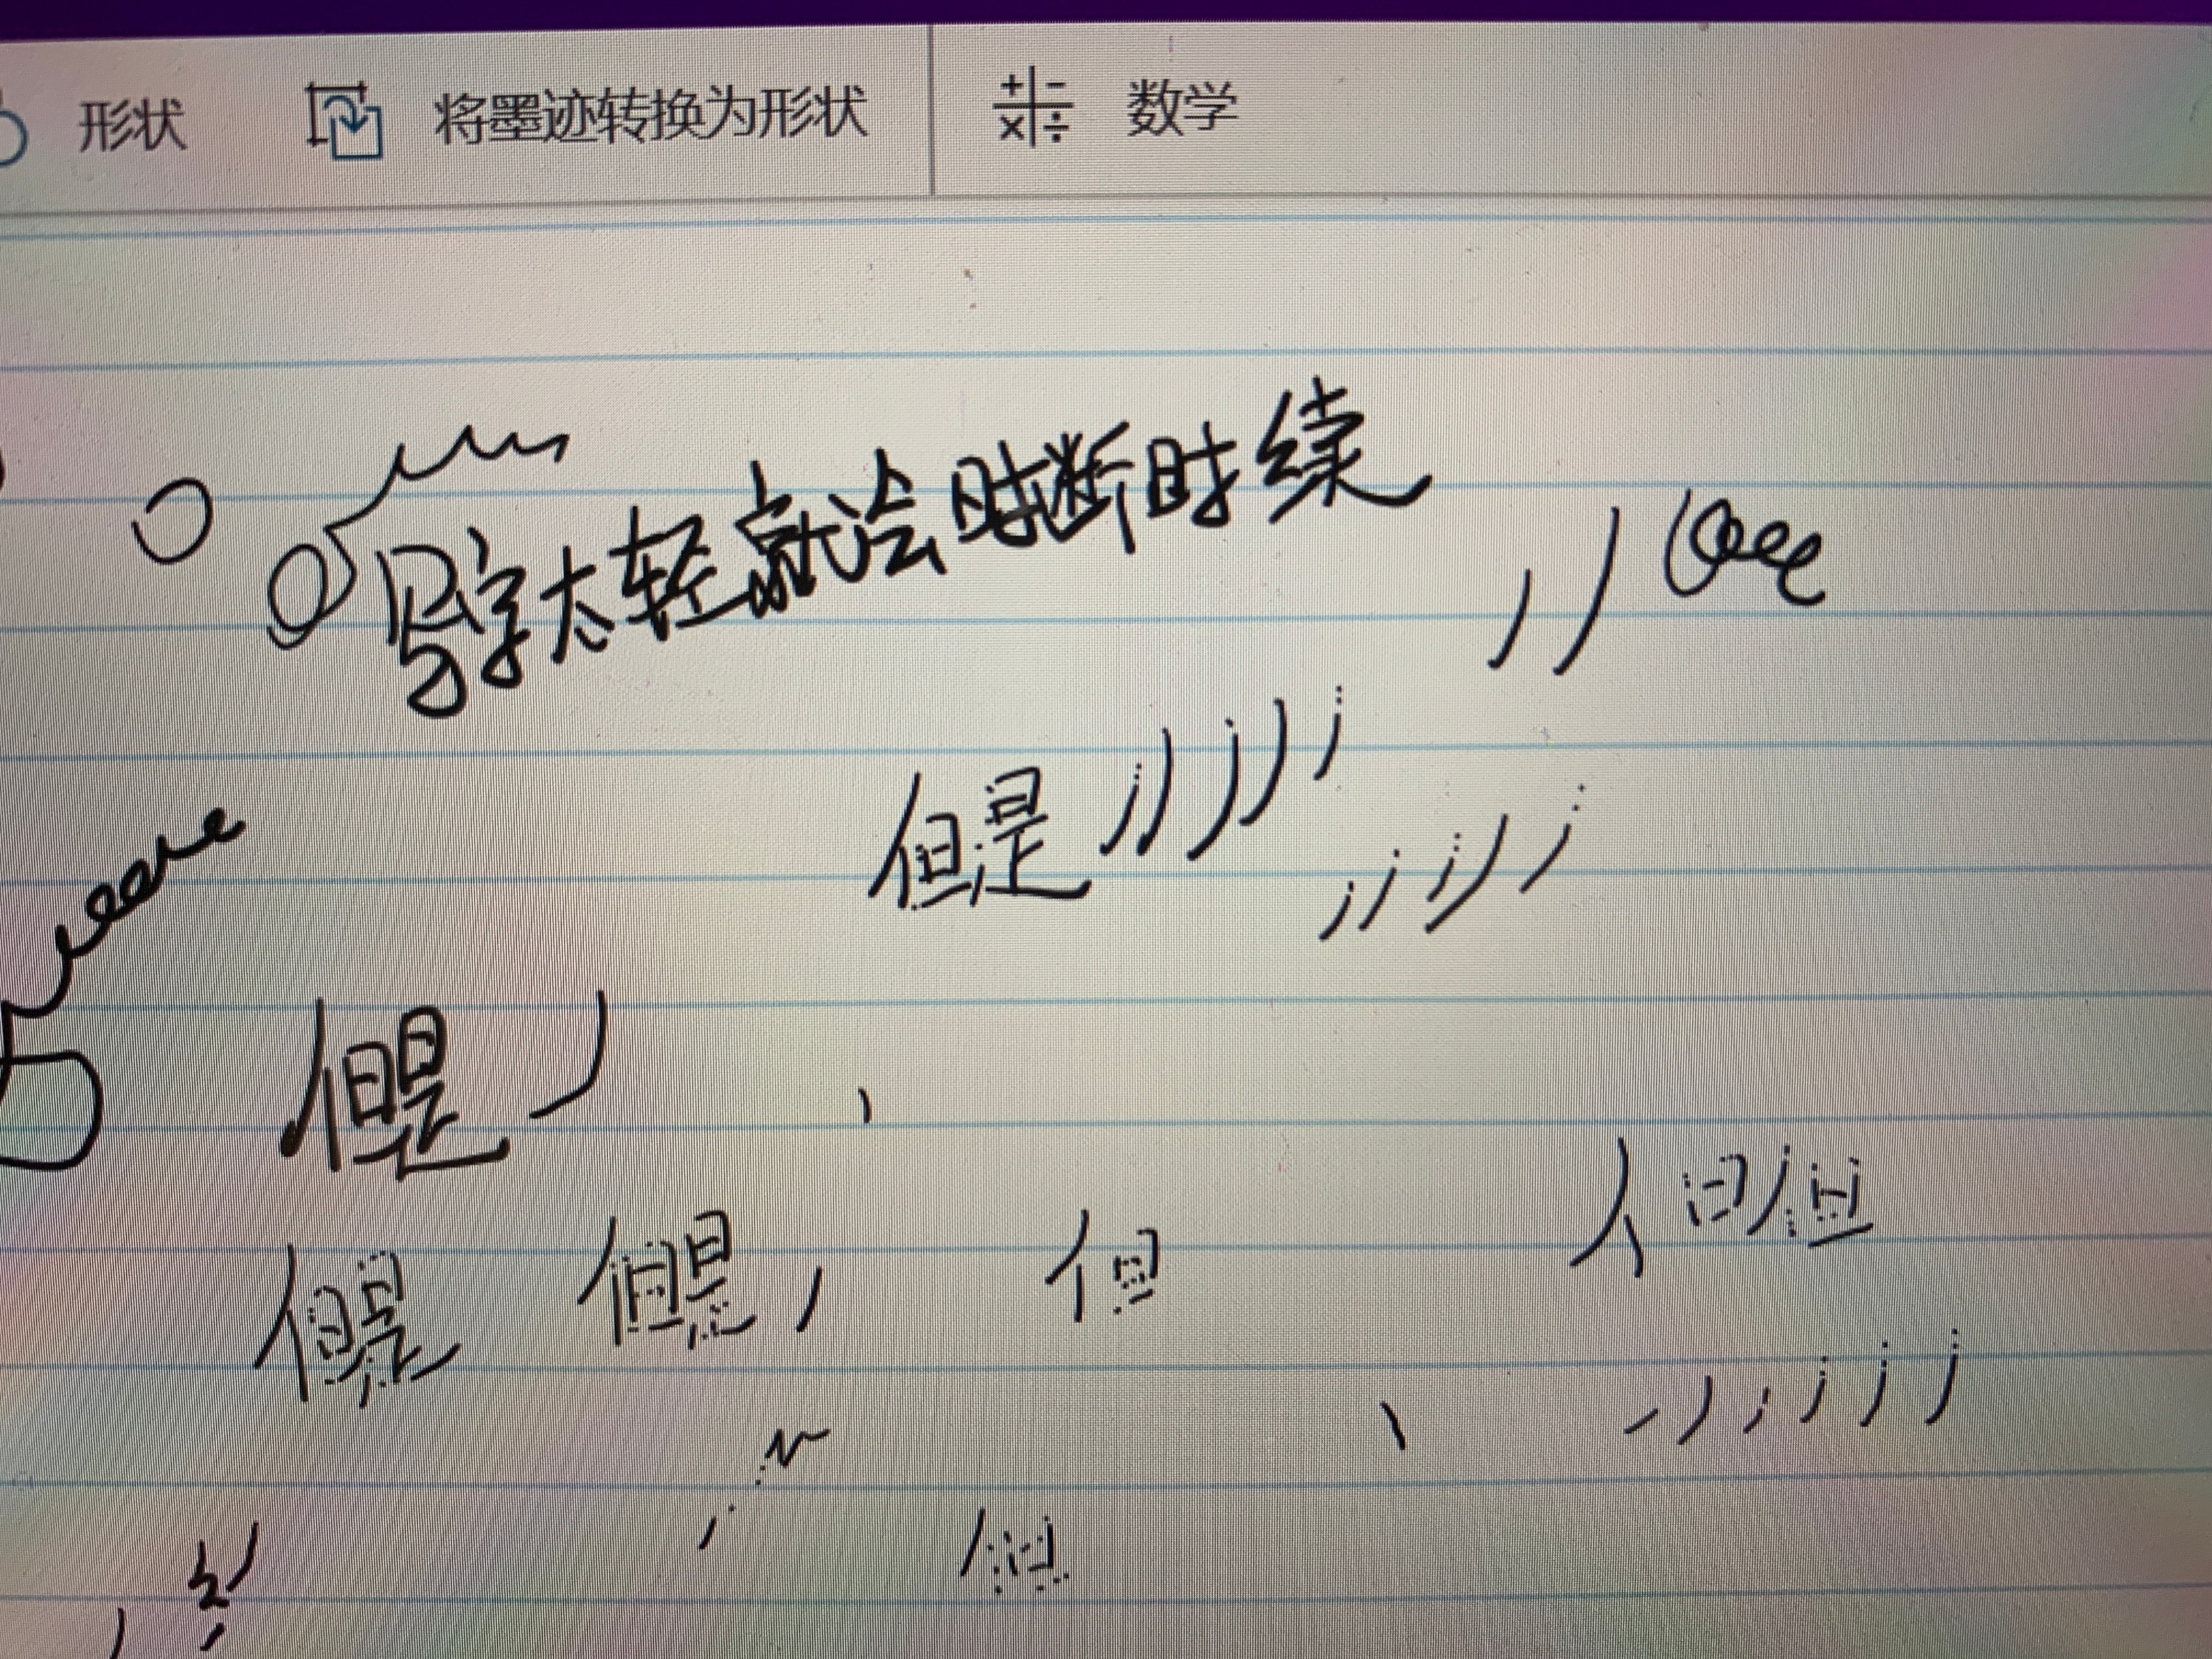 形状 将墨迹转换为形状 数学
写字太轻就会时断时续
但是
但是
但是 但是, 但 人 日 但
但